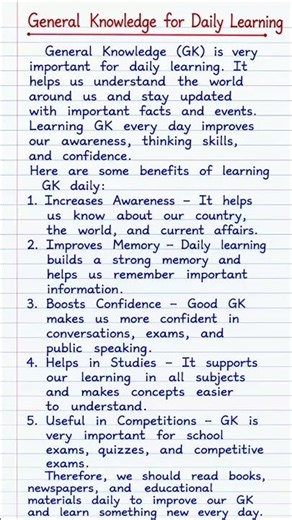 General Knowledge for Daily Learning
General Knowledge (GK) is very
important for daily learning. It
helps us understand the world
around us and stay updated
with important facts and events.
Learning GK every day improves
our awareness, thinking skills,
and confidence.
Here are some benefits of learning
GK daily:
1. Increases Awareness – It helps
us know about our country,
the world, and current affairs.
2. Improves Memory – Daily learning
builds a strong memory and
helps us remember important
information.
3. Boosts Confidence – Good GK
makes us more confident in
conversations, exams, and
public speaking.
4. Helps in Studies – It supports
our learning in all subjects
and makes concepts easier
to understand.
5. Useful in Competitions – GK is
very important for school
exams, quizzes, and competitive
exams.
Therefore, we should read books,
newspapers, and educational
materials daily to improve our GK
and learn something new every day.